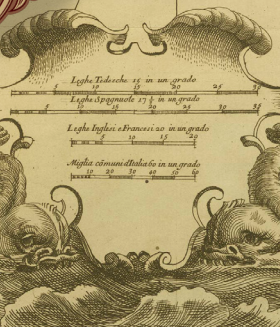 Leghe Tedesche 15 in un grado
5 10 15 20 25 30
Leghe Spagnuole 17 ½ in un grado
5 10 15 20 25 30 35
Leghe Inglesi e Francesi 20 in un grado
5 10 15 20
Miglia cõmuni d'Italia 60 in un grado
10 20 30 40 50 60